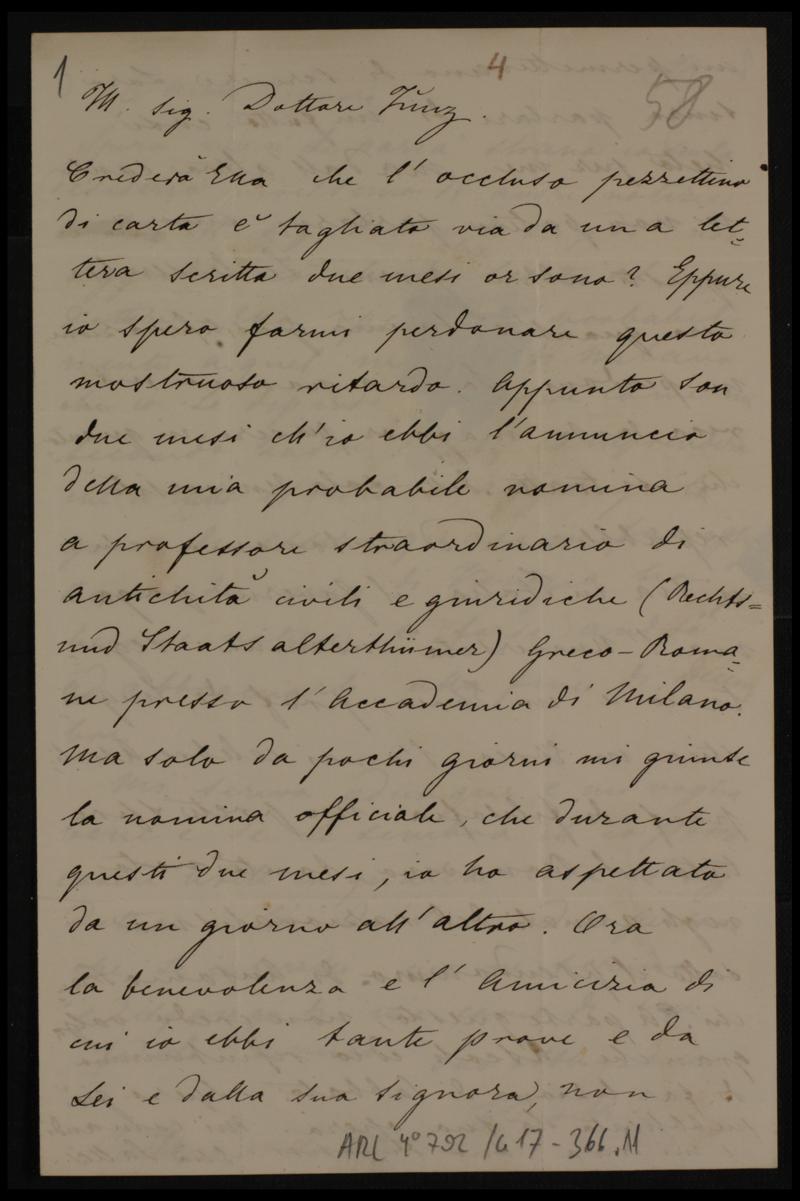 1
4
58
Ill. sig. Dottore Zunz.
Crederà Ella che l'occluso pezzettino
di carta è tagliato via da una let=
tera scritta due mesi or sono? Eppure
io spero farmi perdonare questo
mostruoso ritardo. Appunto son
due mesi ch'io ebbi l'annuncio
della mia probabile nomina
a professore straordinario di
antichità civili e giuridiche (Rechts=
und Staatsalterthümer) Greco-Roma=
ne presso l'Accademia di Milano.
Ma solo da pochi giorni mi giunse
la nomina officiale, che durante
questi due mesi, io ho aspettato
da un giorno all'altro. Ora
la benevolenza e l'amicizia di
cui io ebbi tante prove e da
Lei e dalla sua signora, non
ARC 4° 792 /G 17-366.11